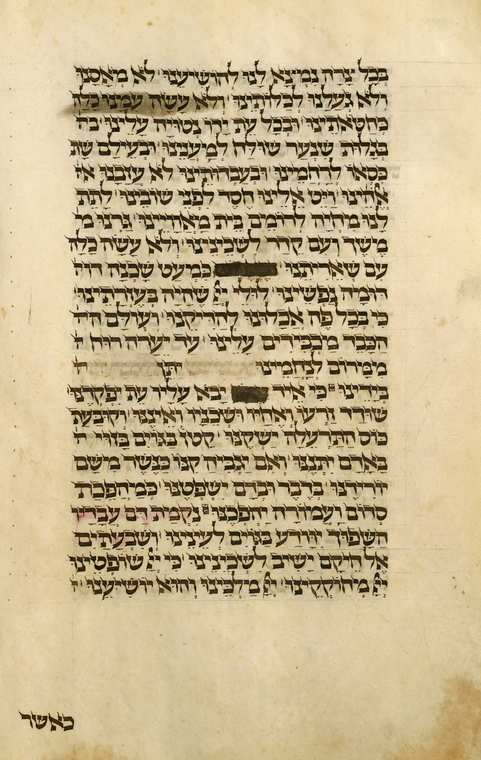 בְּכָל צרה נמצא לנו להושיענו לא מאסנו
ולא געלנו לכלותינו ולא עשה עמנו כלה
כחטאתינו ובכל עת ידו נטוייה עלינו
בגלות שנער שולח למעננו ובעילם
כסאו לרחמינו ובעבדותינו לא עזבנו
אחינו ויט אלינו חסד לפני שובינו לתת
לנו מחיה להומים בית מאוויינו גרנו
משך ועם קדר לשכינינו ולא עשה כלה
עם שאריתנו כמעט שכנה
דומה נפשינו לולי שהיה בעזרתינו
כי בכל פה אכלונו להריקנו ועולם
הכבד מכבידים עלינו עד יערה רוח
ממרום לנחמינו יתן
בידינו כי איד יבא עליו עת יפקדנו
שודד זרעו ואחיו ושכניו ואיננו וקובעת
כוס התרעלה ישקנו קטון בגוים בזוי
באדם יתננו ואם יגביה קנו כנשר משם
יורידנו בדבר ובדם ישפטנו כמהפכת
סדום ועמורה יהפכנו נקמת דם עבדינו
השפוך יוודע בגוים לעינינו ושבעתים
אל חיקם ישיב לשכינינו כי שופטינו
מחוקקינו מלכינו והוא יושיענו
כאשר